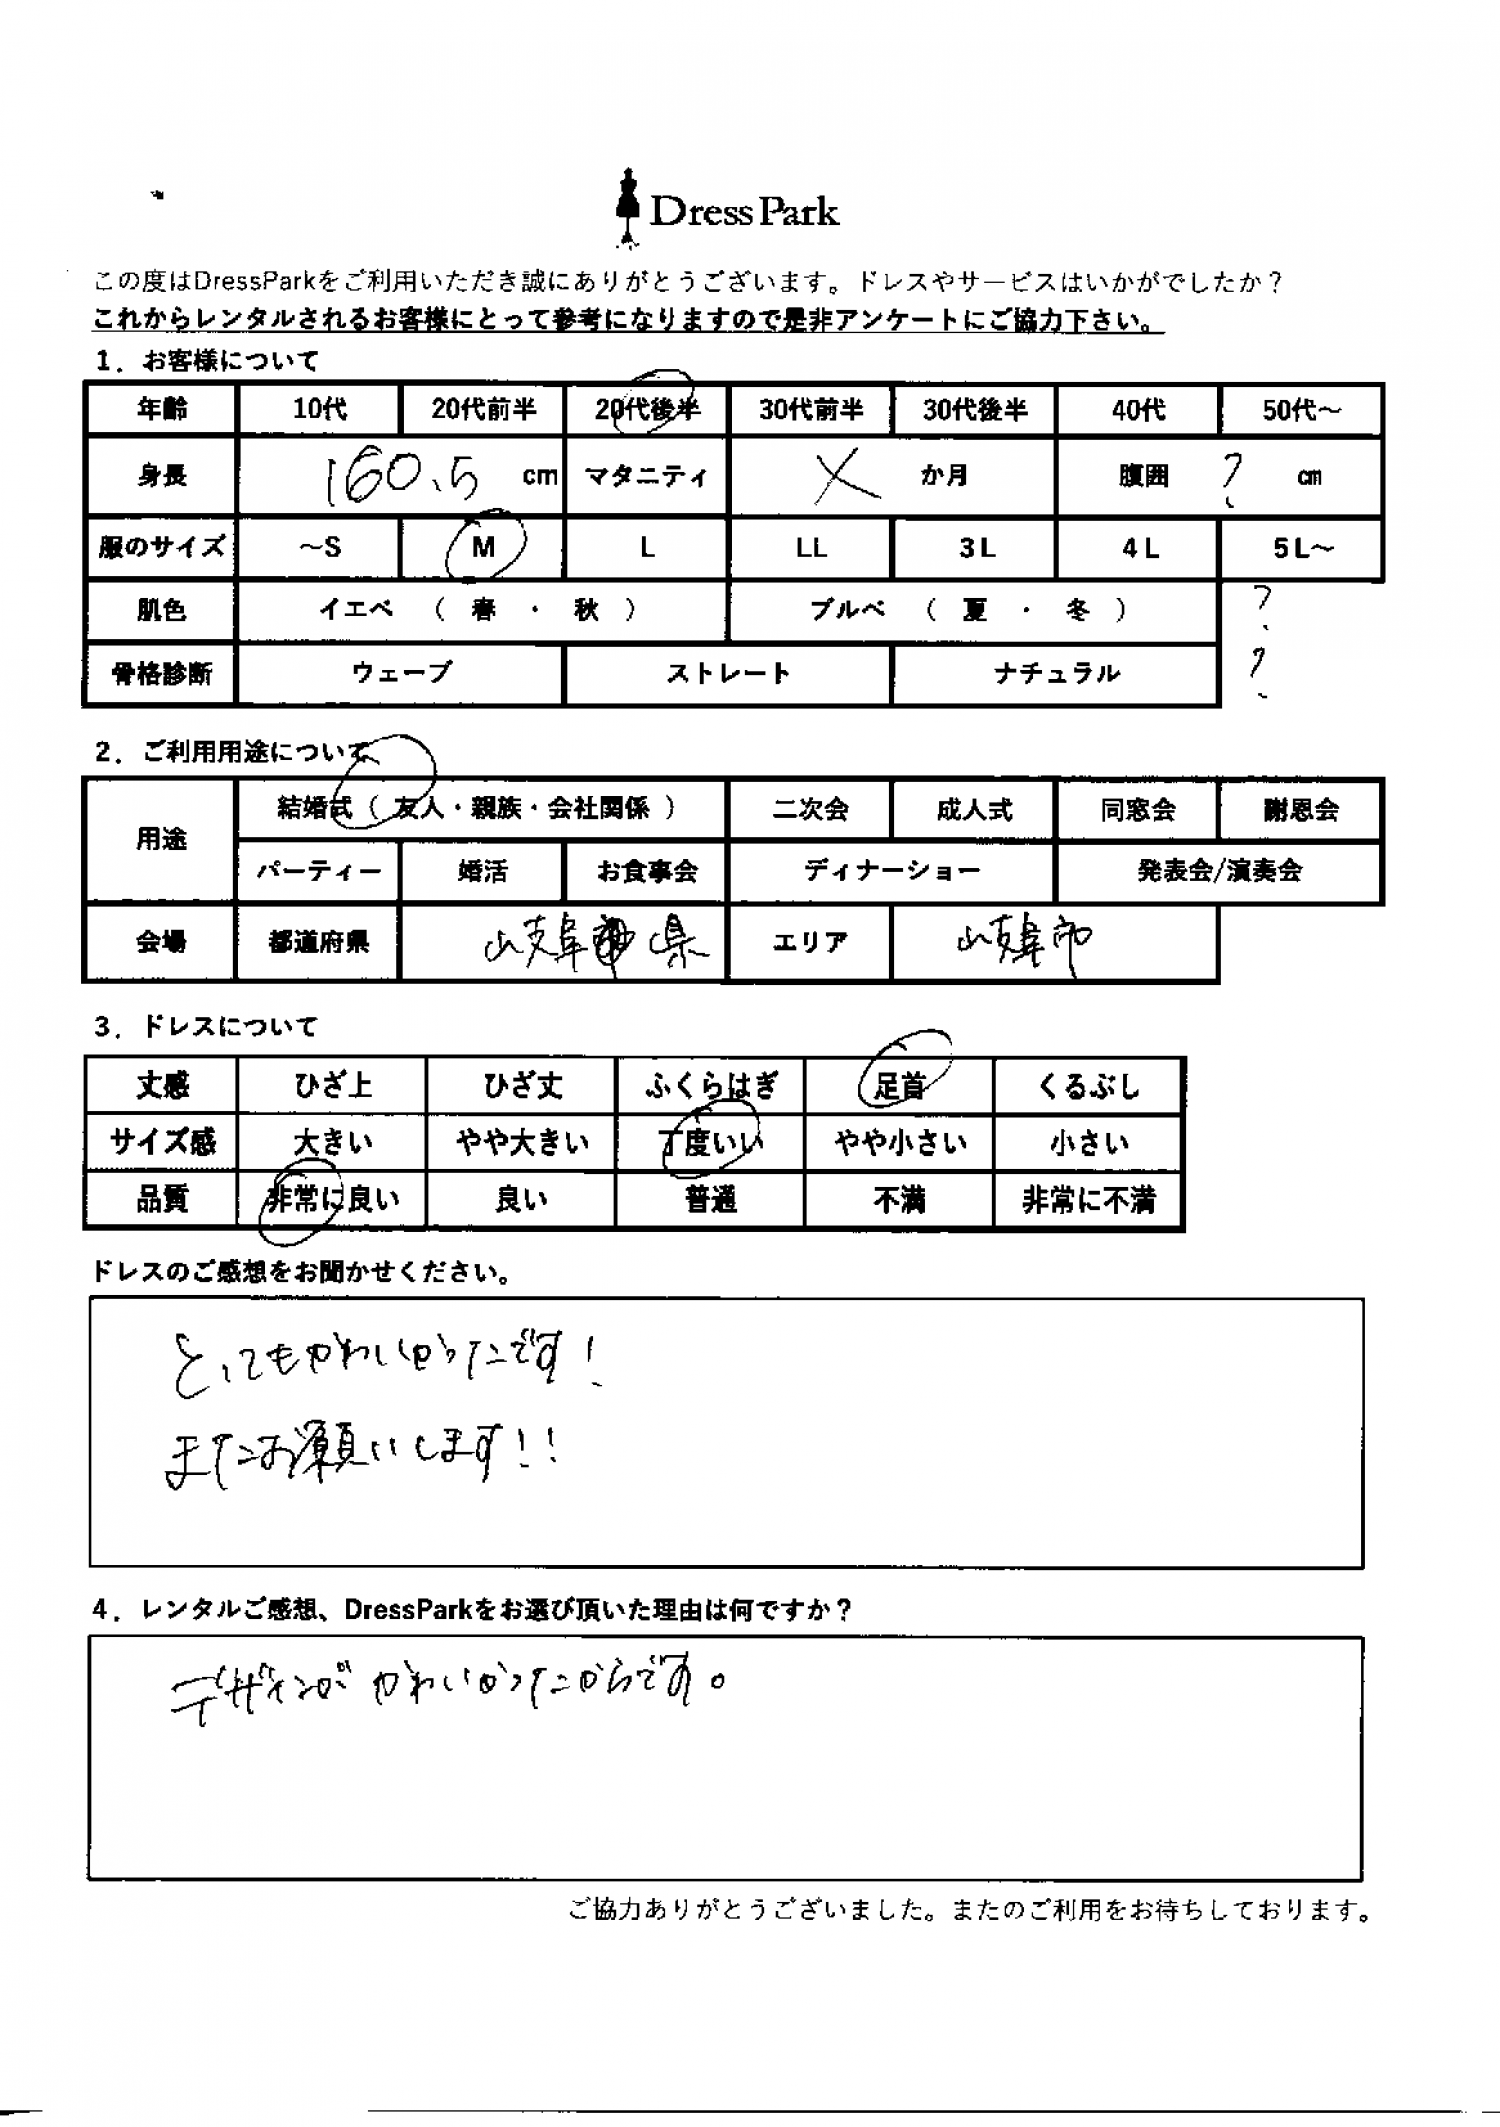 DressPark
この度はDressParkをご利用いただき誠にありがとうございます。ドレスやサービスはいかがでしたか？
これからレンタルされるお客様にとって参考になりますので是非アンケートにご協力下さい。
1．お客様について
年齢 10代 20代前半 20代後半 30代前半 30代後半 40代 50代〜
身長 160.5 cm マタニティ × か月 腹囲 ? cm
服のサイズ 〜S M L LL 3L 4L 5L〜
肌色 イエベ （ 春 ・ 秋 ） ブルベ （ 夏 ・ 冬 ） ?
骨格診断 ウェーブ ストレート ナチュラル ?
2．ご利用用途について
用途 結婚式（ 友人・親族・会社関係 ） 二次会 成人式 同窓会 謝恩会
パーティー 婚活 お食事会 ディナーショー 発表会/演奏会
会場 都道府県 岐阜県 エリア 岐阜市
3．ドレスについて
丈感 ひざ上 ひざ丈 ふくらはぎ 足首 くるぶし
サイズ感 大きい やや大きい 丁度いい やや小さい 小さい
品質 非常に良い 良い 普通 不満 非常に不満
ドレスのご感想をお聞かせください。
とってもかわいかったです！
またお願いします！！
4．レンタルご感想、DressParkをお選び頂いた理由は何ですか？
デザインがかわいかったからです。
ご協力ありがとうございました。またのご利用をお待ちしております。